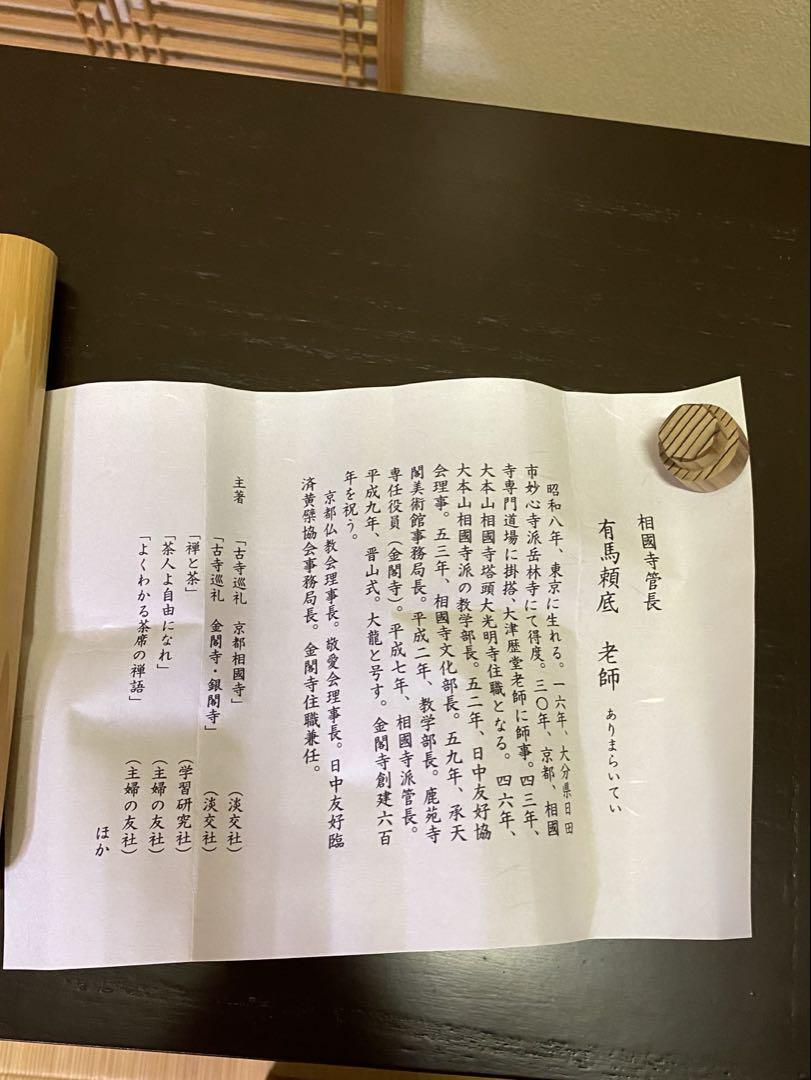 相國寺管長
有馬頼底　老師　ありまらいてい
昭和八年、東京に生れる。一六年、大分県日田
市妙心寺派岳林寺にて得度。三〇年、京都、相國
寺専門道場に掛搭、大津歴堂老師に師事。四三年、
大本山相國寺塔頭大光明寺住職となる。四六年、
大本山相國寺派の教学部長。五二年、日中友好協
会理事。五三年、相國寺文化部長。五九年、承天
閣美術館事務局長。平成二年、教学部長。鹿苑寺
専任役員（金閣寺）。平成七年、相國寺派管長。
平成九年、晋山式。大龍と号す。金閣寺創建六百
年を祝う。
京都仏教会理事長。敬愛会理事長。日中友好臨
済黄檗協会事務局長。金閣寺住職兼任。
主著　「古寺巡礼　京都相國寺」　（淡交社）
「古寺巡礼　金閣寺・銀閣寺」　（淡交社）
「禪と茶」　（学習研究社）
「茶人よ自由になれ」　（主婦の友社）
「よくわかる茶席の禅語」　（主婦の友社）
ほか